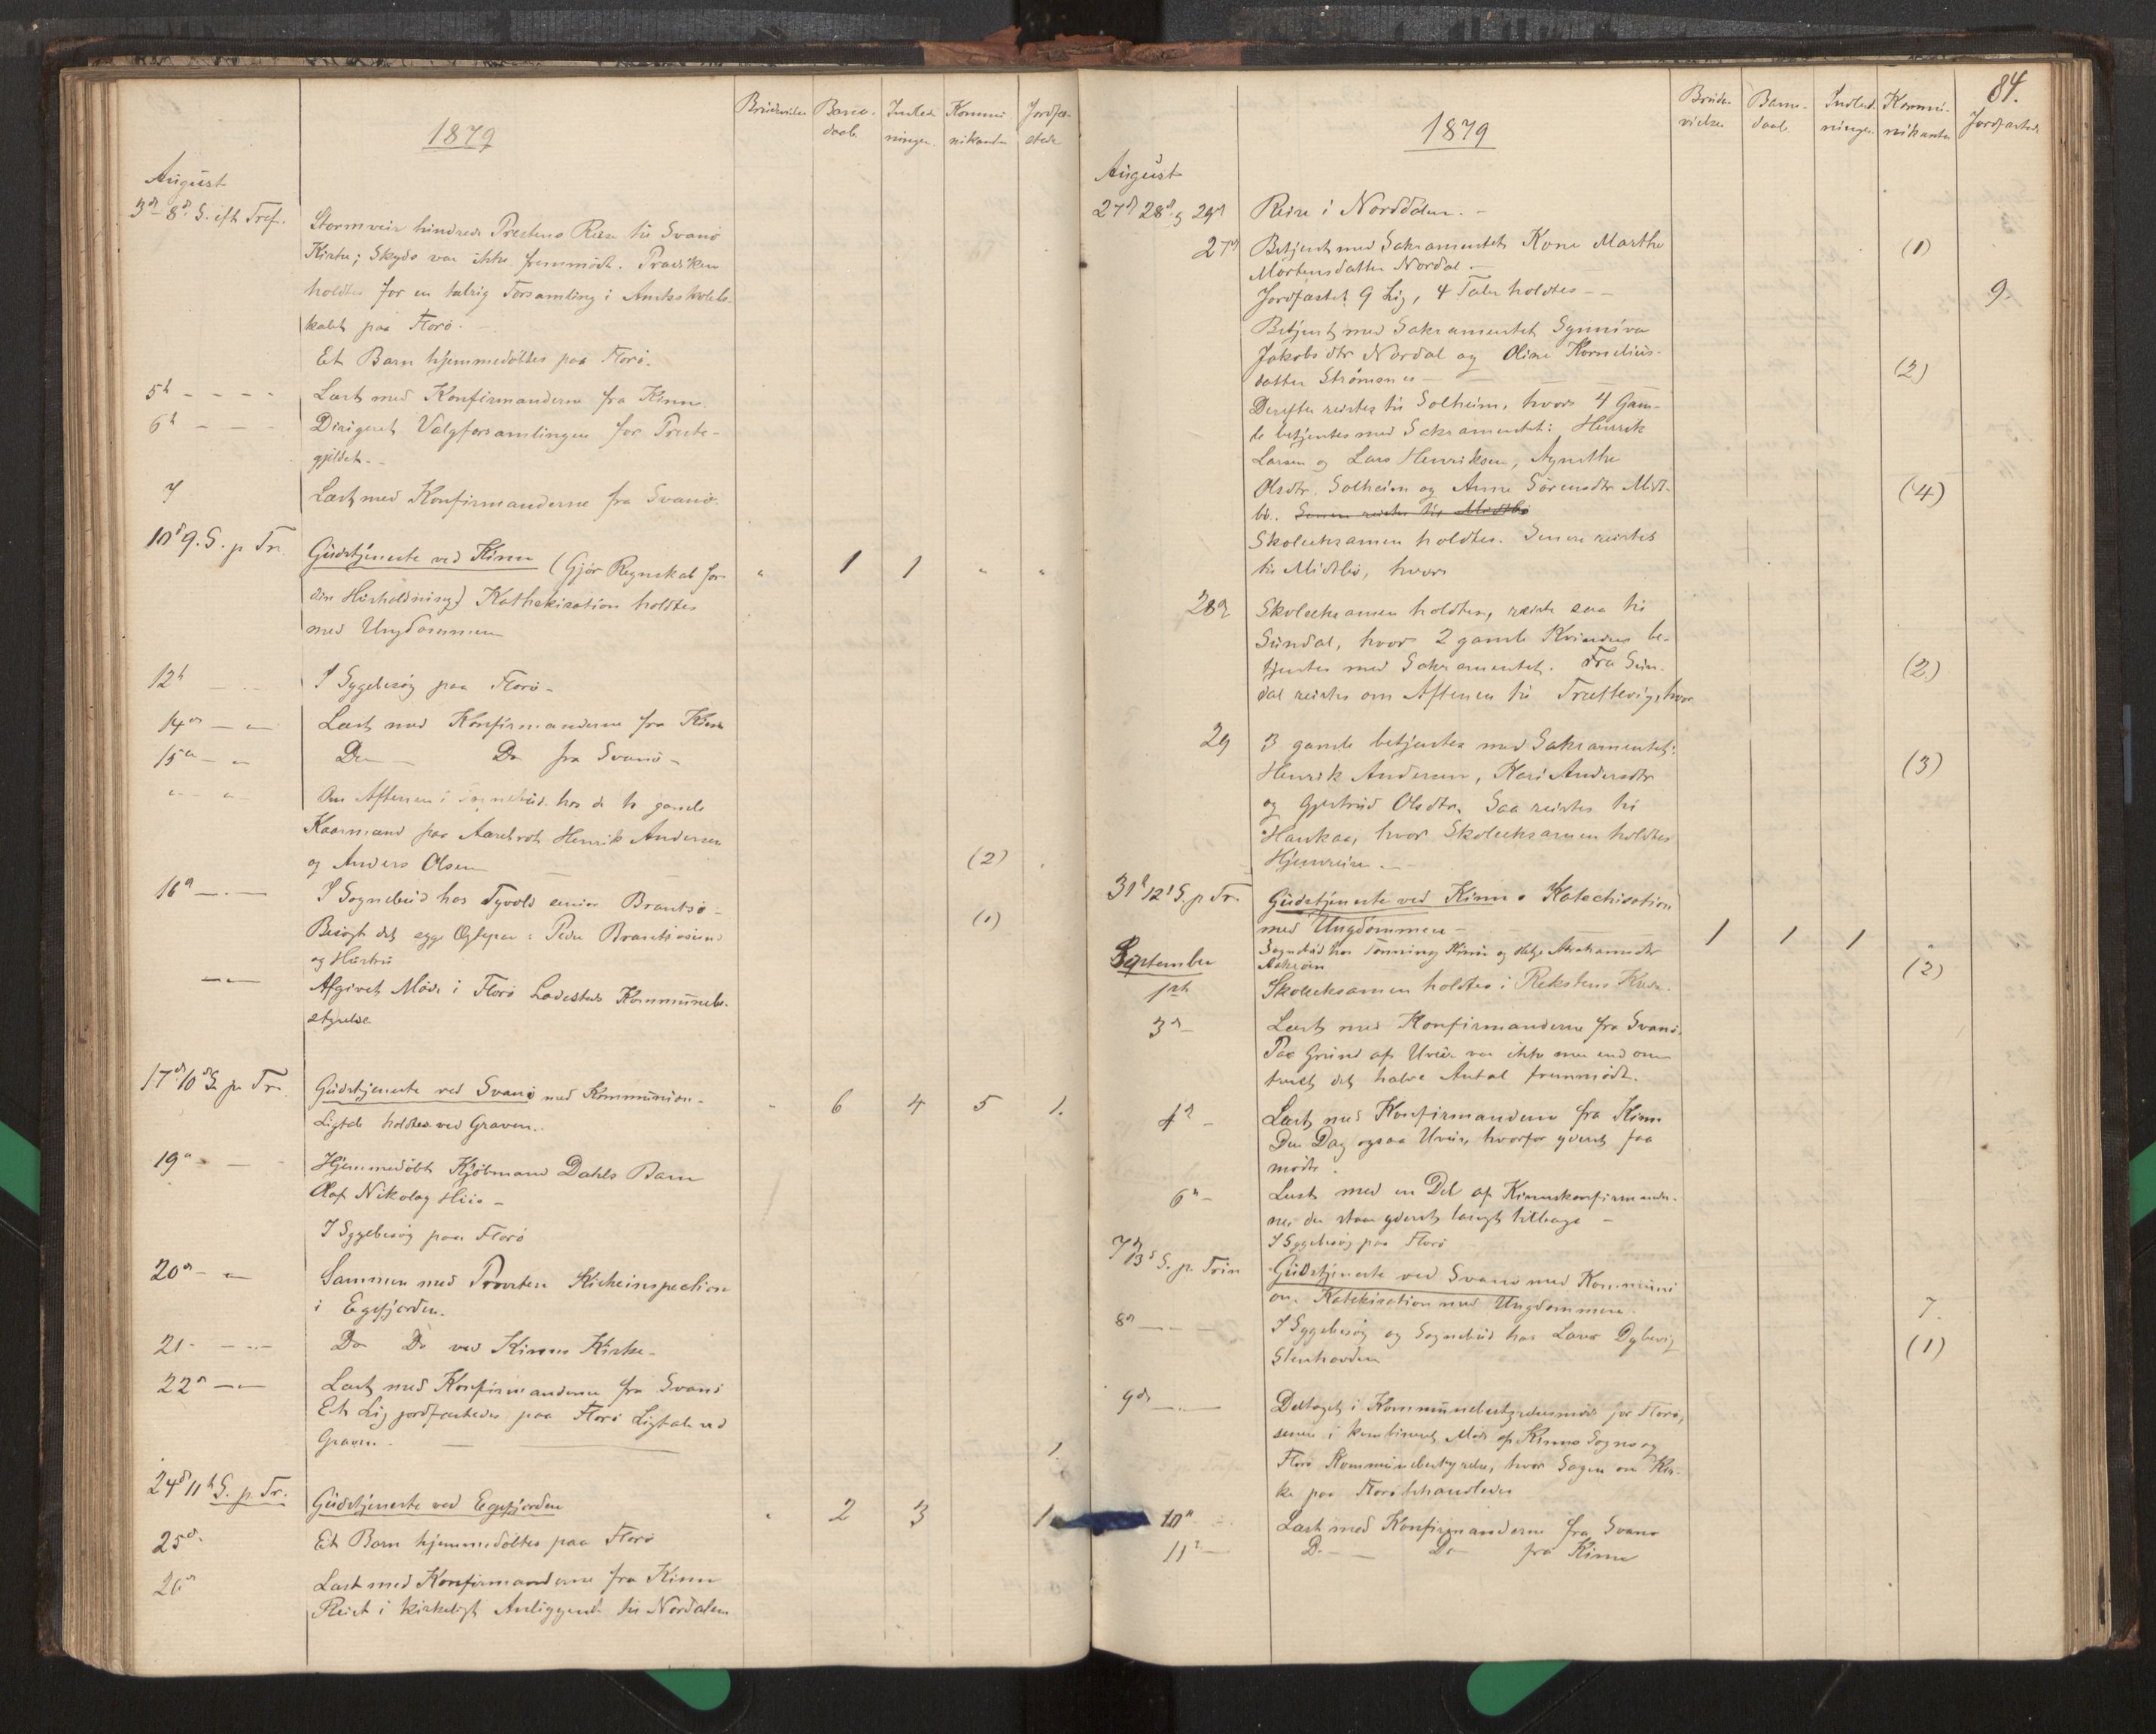 Brudevielse Barne- Indled- Kommu- Jordfæ-
daab. ningen. nikanter stede
1879
August
3d 8d S. eft Tref. Stormveir hindrede Prestens Reise til Svanø
Kirke; Skyds var ikke fremmødt. Prædiken
holdtes for en talrig Forsamling i Amtsskolelo-
kalet paa Florø.
Et Barn hjemmedøbtes paa Florø.
5te - - - - Læst med Konfirmanderne fra Kinn
6te - - - Dirigeret Valgforsamlingen for Preste-
gjeldet. -
7 Læst med Konfirmanderne fra Svanø.
10d 9. S. p Tr. Gudstjeneste ved Kinn (Gjør Regnskab for " 1 1 " "
din Husholdning) Kathekisation holdtes
med Ungdommen
12te - ... I Sygebesøg paa Florø -
14de — " — Læst med Konfirmanderne fra Kinn
15de — " Do — Do fra Svanø -
" — " Om Aftenen i Sognebud hos de to gamle
Kaarmænd paa Aarebrot Henrik Andersen
og Anders Olsen (2)
16de — . — I Sognebud hos Tyvold senior Brantsø - (1)
Besøgt det syge Ægtepar: Peder Brantsøsund
og Hustru
— " — Afgivet Møde i Florø Ladesteds Kommunebe-
styrelse.
17d 10d S. p. Tr. Gudstjeneste ved Svanø med Kommunion. " 6 4 5 1.
Ligtale holdtes ved Graven.
19de — Hjemmedøbt Kjøbmand Dahls Barn
Olaf Nikolay Hiis -
I Sygebesøg paa Florø
20de - " Sammen med Provsten Kirkeinspection
i Egefjorden.
21 - - ... Do Do ved Kinns Kirke -
22de — " — Læst med Konfirmanderne fra Svanø
Et Lig jordfæstedes paa Florø Ligtale ved
Graven - 1.
24d 11te S. p. Tr. Gudstjeneste ved Egefjorden " 2 3 1.
25de Et Barn hjemmedøbtes paa Florø
26de Læst med Konfirmanderne fra Kinn
Reist i kirkeligt Anliggende til Nordalen
84.
Brude- Barne- Indled- Kommu- Jordfæstede
vielse daab. ningen. nikanter
1879
August
27d 28d og 29de Reise i Norddalen. -
27de Betjent med Sakramentet Kone Marthe (1)
Mortensdatter Nordal. -
Jordfæstet 9 Lig, 4 Taler holdtes - - 9.
Betjent med Sakramentet Synniva
Jakobsdtr Nordal og Oline Kornelius-
datter Strømsnes (2)
Derefter reistes til Solheim, hvor 4 Gam-
le betjentes med Sakramentet: Henrik
Larsen og Lars Henriksen, Agnethe
Olsdtr. Solheim og Anne Sørensdtr Midt- (4)
bø. Senere reistes til Midtbø
Skoleeksamen holdtes. Senere reistes
til Midtbø, hvor
28de Skoleeksamen holdtes, reiste saa til
Sundal, hvor 2 gamle Kvinder be-
tjentes med Sakramentet. Fra Sun- (2)
dal reistes om Aftenen til Trættevig, hvor
29 3 gamle betjentes med Sakramentet:
Henrik Andersen, Kari Andersdtr (3)
og Gjertrud Olsdtr. Saa reistes til
Haukaa, hvor Skoleeksamen holdtes
Hjemreise. -
31te 12te S. p Tr. Gudstjeneste ved Kinn. Katechisation
med Ungdommen - 1 1 1 "
September Sognebud hos Tønning Kinn og Helge Abrahamsdtr
(2)
1ste Skoleeksamen holdtes i Rekstens Kreds.
3de - Læst med Konfirmanderne fra Svanø.
Paa Grund af Uveir var ikke mer end om-
trent det halve Antal fremmødt.
4de - Læst med Konfirmanderne fra Kinn
Den Dag ogsaa Uveir, hvorfor yderst faa
mødte.
6te - Læst med en Del af Kinnskonfirmander-
ne, der staar yderst langt tilbage -
I Sygebesøg paa Florø
7de 13d S. p. Trin Gudstjeneste ved Svanø med Kommuni
on. Katekisation med Ungdommen. 7.
8de — — I Sygebesøg og Sognebud hos Lars Dybevig (1)
9de — . — Deltaget i Kommunebestyrelsesmøde for Florø,
senere i kombineret Møde af Kinns Sogns og
Florø Kommunebestyrelse, hvor Sagen om Kir-
ke paa Florø behandledes
10de Læst med Konfirmanderne fra Svanø
11te - Do — Do — fra Kinn